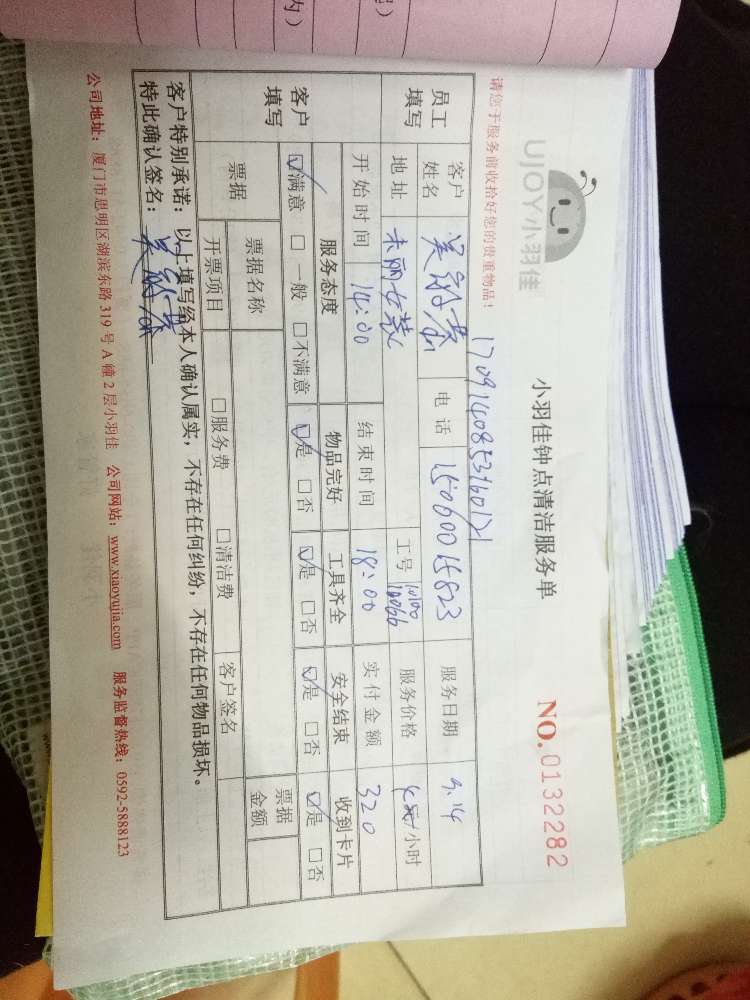 UJOY小羽佳
小羽佳钟点清洁服务单
NO.0132282
请您于服务前收拾好您的贵重物品！
员工填写
客户姓名
电话 15060015823
服务日期 9.14
地址
工号
服务价格
/小时
开始时间 14:00
结束时间 18:00
实付金额 320
客户填写
服务态度 物品完好 工具齐全 安全结束 收到卡片
☑满意 □一般 □不满意 ☑是 □否 ☑是 □否 ☑是 □否 ☑是 □否
票据 票据名称 票据金额
开票项目 □服务费 □清洁费 客户签名
客户特别承诺：以上填写给本人确认属实，不存在任何纠纷，不存在任何物品损坏。
特此确认签名：
公司地址：厦门市思明区湖滨东路 319 号 A 幢 2 层小羽佳 公司网站：www.xiaoyujia.com 服务监督热线：0592-5888123